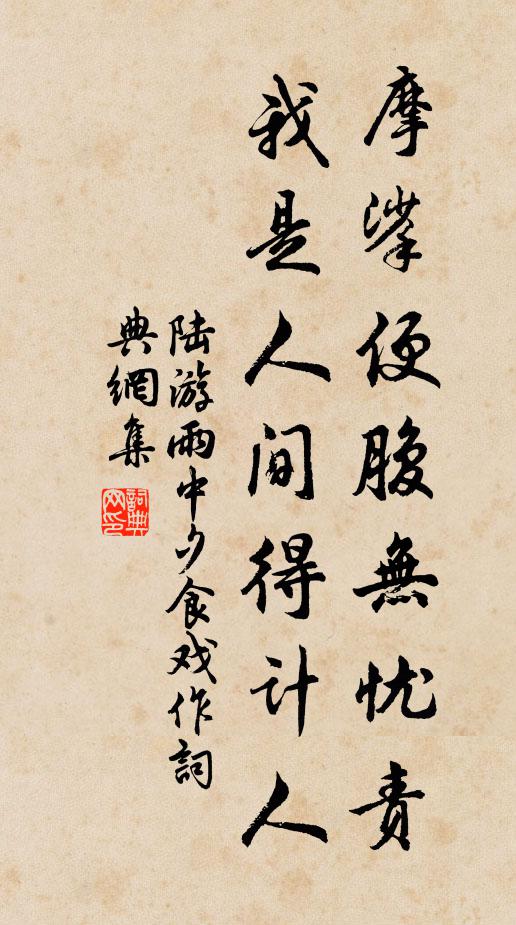 摩挲便腹無忧责
我是人间得计人
陆游雨中夕食戏作詞
典網集
詞典网印